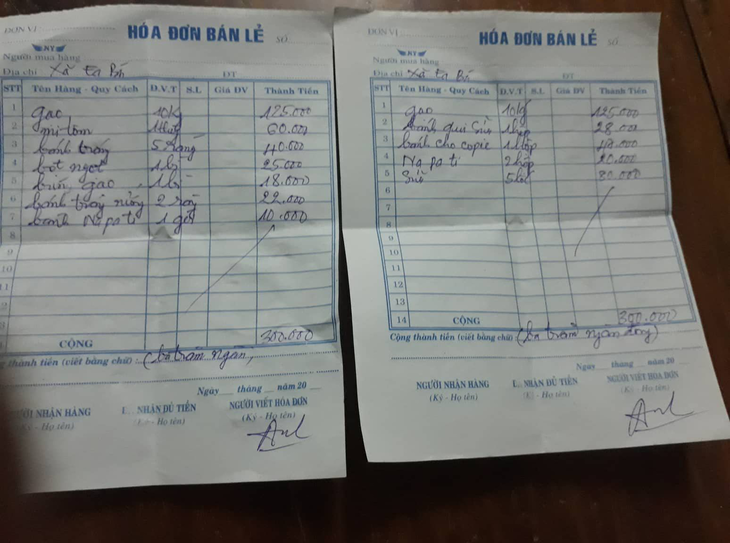 ĐƠN VỊ
HÓA ĐƠN BÁN LẺ SỐ
Người mua hàng
Địa chỉ Xã Ea Bá ĐT
STT Tên Hàng - Quy Cách Đ.V.T S.L Giá ĐV Thành Tiền
1 gạo 10kg 125.000
2 mì tôm 60.000
3 bánh tráng 5 ràng 40.000
4 bột ngọt 25.000
5 bún gạo 18.000
6 bánh tráng nướng 2 ràng 22.000
7 bánh Napati 1 gói 10.000
8
9
10
11
CỘNG 300.000
g thành tiền (viết bằng chữ) : (ba trăm ngàn,
Ngày tháng năm 20
NGƯỜI NHẬN HÀNG NHẬN ĐỦ TIỀN NGƯỜI VIẾT HÓA ĐƠN
(Ký - Họ tên) Họ tên) (Ký - Họ tên)
ĐƠN VỊ
HÓA ĐƠN BÁN LẺ SỐ
Người mua hàng
Địa chỉ Xã Ea Bá ĐT
STT Tên Hàng - Quy Cách Đ.V.T S.L Giá ĐV Thành Tiền
1 gạo 10kg 125.000
2 bánh qui 1 hộp 28.000
3 bánh cho copie 1 hộp
4 Napati 2 hộp 20.000
5 80.000
6
7
8
9
10
11
12
13
14 CỘNG 300.000
Cộng thành tiền (viết bằng chữ) (ba trăm ngàn đồng)
Ngày tháng năm 20
NGƯỜI NHẬN HÀNG NHẬN ĐỦ TIỀN NGƯỜI VIẾT HÓA ĐƠN
(Ký - Họ tên) Họ tên) (Ký - Họ tên)